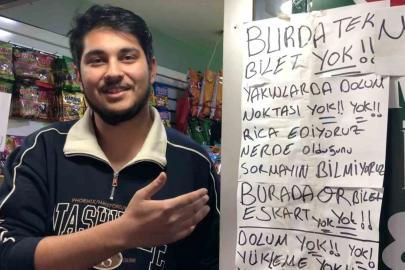 BURDA TEK
BİLET YOK!!
YAKINLARDA DOLUM
NOKTASI YOK!! YOK!!
RİCA EDİYORUZ
NERDE olduğunu
SORMAYIN BİLMİYORUZ
BURADA OR BİLET
ESKART YOK YOK!!
DOLUM YOK!! YOK!!
YÜKLEME YOK
PHOENIX
NASH